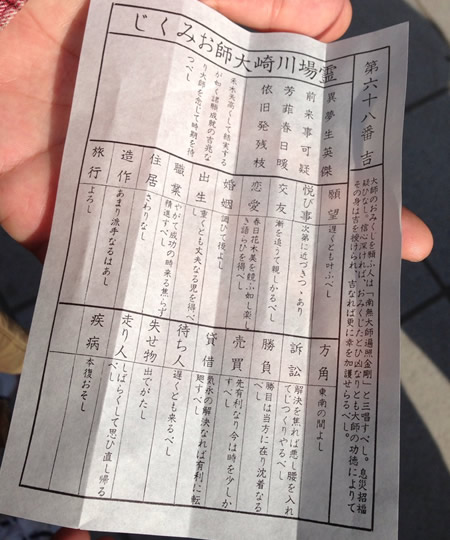 第六十八番 吉
大師のおみくじを願ふ人は「南無大師遍照金剛」と三唱すべし。息災招福
疑ひなし。信心深ければ、おみくじたとひ凶なりとも大師の功徳によりて
その身は吉を授けられ、吉なれば更に幸を加護せらるべし。
霊場川崎大師おみくじ
異夢生英傑
前来事可疑
芳菲春日暖
依旧発残枝
高くして結実する
が如く諸願成就の吉兆な
り大師を念じて時期を待
つべし
願望 遅くとも叶ふべし
悦び事 次第に近づきつゝあり
交友 漸を追うて親しかるべし
恋愛 春日花木美を競ふ如し楽し
き語らひを得べし
婚姻 調ひて後よし
出生 重くとも丈夫なる児を得べし
職業 やがて成功の時来る焦らず
精進すべし
住居 さわりなし
造作 あまり派手なるはあし
旅行 よろし
方角 東南の間よし
訴訟 解決を焦れば悪し腰を入れ
てじつくりやるべし
勝負 勝目は当方に在り沈着なる
べし
売買 先有利なり今は時を少しか
すべし
貸借 気永の解決なれば有利に転
廻すべし
待ち人 遅くとも来るべし
失せ物 出でがたし
走り人 しばらくして思ひ直し帰る
べし
疾病 本復おそし